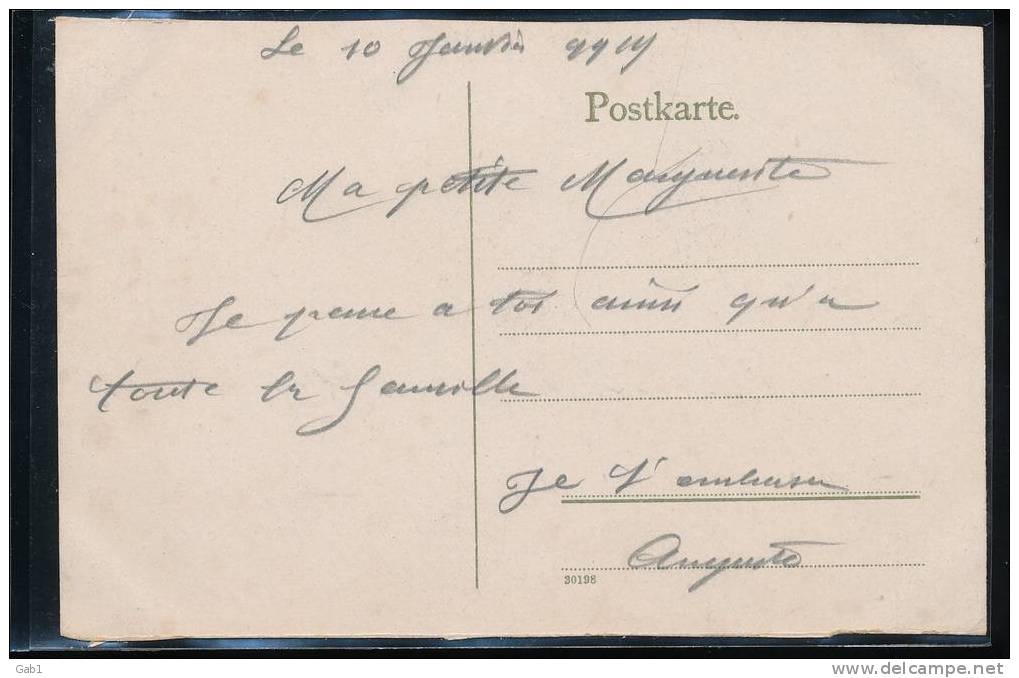 Le 10 Janvier 1914
Postkarte.
Ma petite Marguerite
Je pense a toi ainsi qu'a
toute la famille
Je t'embrasse
Auguste
30198
Gab1
www.delcampe.net